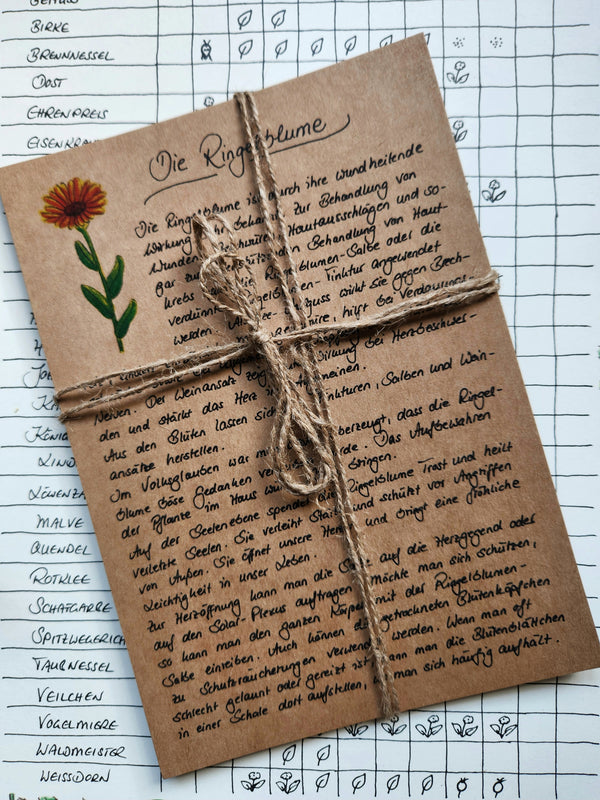 BIRKE
BRENNNESSEL
DOST
EHRENPREIS
EISENKRAU
Die Ringelblume
Die Ringelblume ist durch ihre wundheilende
Wirkung bekannt. Zur Behandlung von
Wunden, Hautausschlägen und so-
gar zur Behandlung von Haut-
krebs Ringelblumen-Salbe oder die
verdünnte Ringelblumen-Tinktur angewendet
werden. Als Tee wirkt sie gegen Erbrech-
hilft bei Verdauungs-
bei Herzbeschwer-
Nerven. Der Weinansatz
den und stärkt das Herz im Allgemeinen.
Aus den Blüten lassen sich Tinkturen, Salben und Wein-
ansätze herstellen.
Im Volksglauben war man überzeugt, dass die Ringel-
blume böse Gedanken Das Aufbewahren
der Pflanze im Haus bringen.
Auf der Seelenebene spendet die Ringelblume Trost und heilt
verletzte Seelen. Sie verleiht und schützt vor Angriffen
von Außen. Sie öffnet unsere Herzen und bringt eine fröhliche
Leichtigkeit in unser Leben.
Zur Herzöffnung kann man die Salbe auf die Herzgegend oder
auf den Solar-Plexus auftragen. möchte man sich schützen,
so kann man den ganzen Körper mit der Ringelblumen-
Salbe einreiben. Auch können die getrockneten Blütenköpfchen
zu Schutzräucherungen verwendet werden. Wenn man oft
schlecht gelaunt oder gereizt ist, kann man die Blütenblättchen
in einer Schale dort aufstellen, man sich häufig aufhält.
KÖNIG
LIND
LÖWENZA
MALVE
QUENDEL
ROTKLEE
SCHAFGARBE
SPITZWEGERICH
TAUBNESSEL
VEILCHEN
VOGELMIERE
WALDMEISTER
WEISSDORN